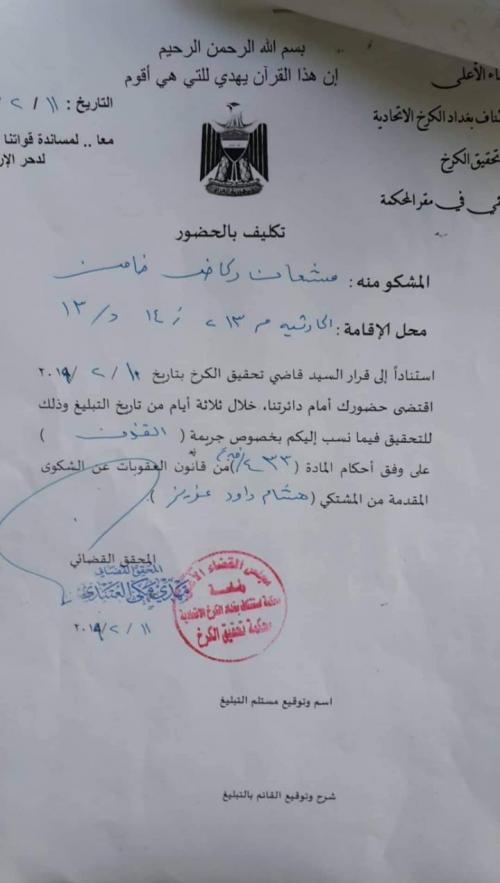 بسم الله الرحمن الرحيم
إن هذا القرآن يهدي للتي هي أقوم
ء الأعلى
ناف بغداد الكرخ الاتحادية
تحقيق الكرخ
ي في مقر المحكمة
التاريخ : ١١ / ٢ /
معا .. لمساندة قواتنا
لدحر الإر
تكليف بالحضور
المشكو منه : مشعان ركاض ضامن
محل الإقامة : الحارثيه م ٢١٣ ز ١٤ د / ١٣
استناداً إلى قرار السيد قاضي تحقيق الكرخ بتاريخ ١٠ / ٢ / ٢٠١٩
اقتضى حضورك أمام دائرتنا، خلال ثلاثة أيام من تاريخ التبليغ وذلك
للتحقيق فيما نسب إليكم بخصوص جريمة ( القذف )
على وفق أحكام المادة ( ٤٣٣ / ) من قانون العقوبات عن الشكوى
المقدمة من المشتكي ( هشام داود عزيز ).
المحقق القضائي
المحقق القضائي
مهدي العتبدي
٢٠١٩ / ٢ / ١١
مجلس القضاء الأعلى
رئاسة
محكمة استئناف بغداد الكرخ الاتحادية
محكمة تحقيق الكرخ
اسم وتوقيع مستلم التبليغ
شرح وتوقيع القائم بالتبليغ